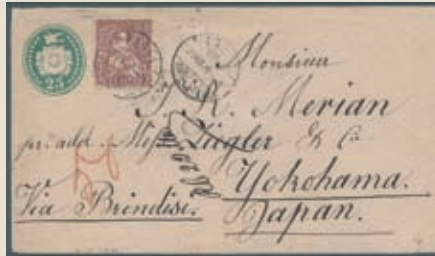 25
Monsieur
J. R. Merian
pr. add. Mess. Ziegler & C.
Yokohama.
Via Brindisi.
Japan.